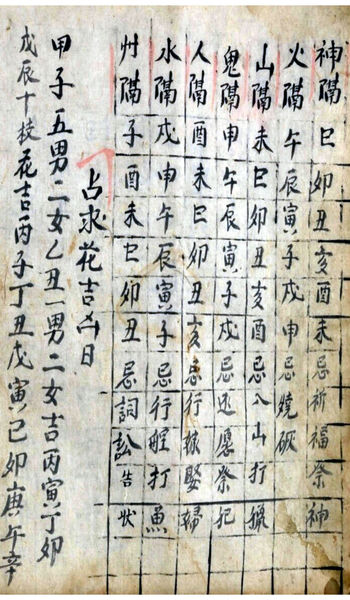 神隔巳卯丑亥酉未忌祈福祭神
火隔午辰寅子戌申忌燒
山隔未巳卯丑亥酉忌入山打獵
鬼隔申午辰寅子戌忌还愿祭祀
人隔酉未巳卯丑亥忌行嫁娶婦
水隔戌申午辰寅子忌行程打魚
州隔子酉未巳卯丑忌詞訟告狀
占求花吉凶日
甲子五男二女乙丑一男二女吉丙寅丁卯
戊辰十枝花吉丙子丁丑戊寅己卯庚午辛